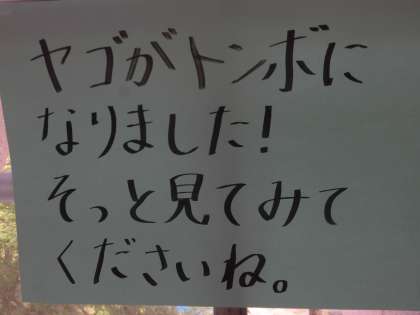 ヤゴがトンボに
なりました!
そっと見てみて
くださいね。